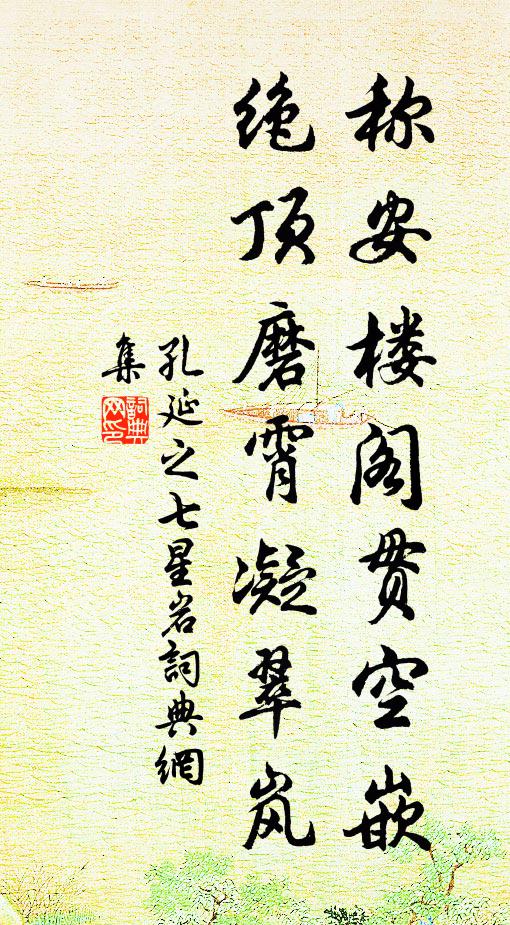 称安楼阁贯空嵌
绝顶磨霄凝翠岚
孔延之七星岩詞典網
集
詞典
网印